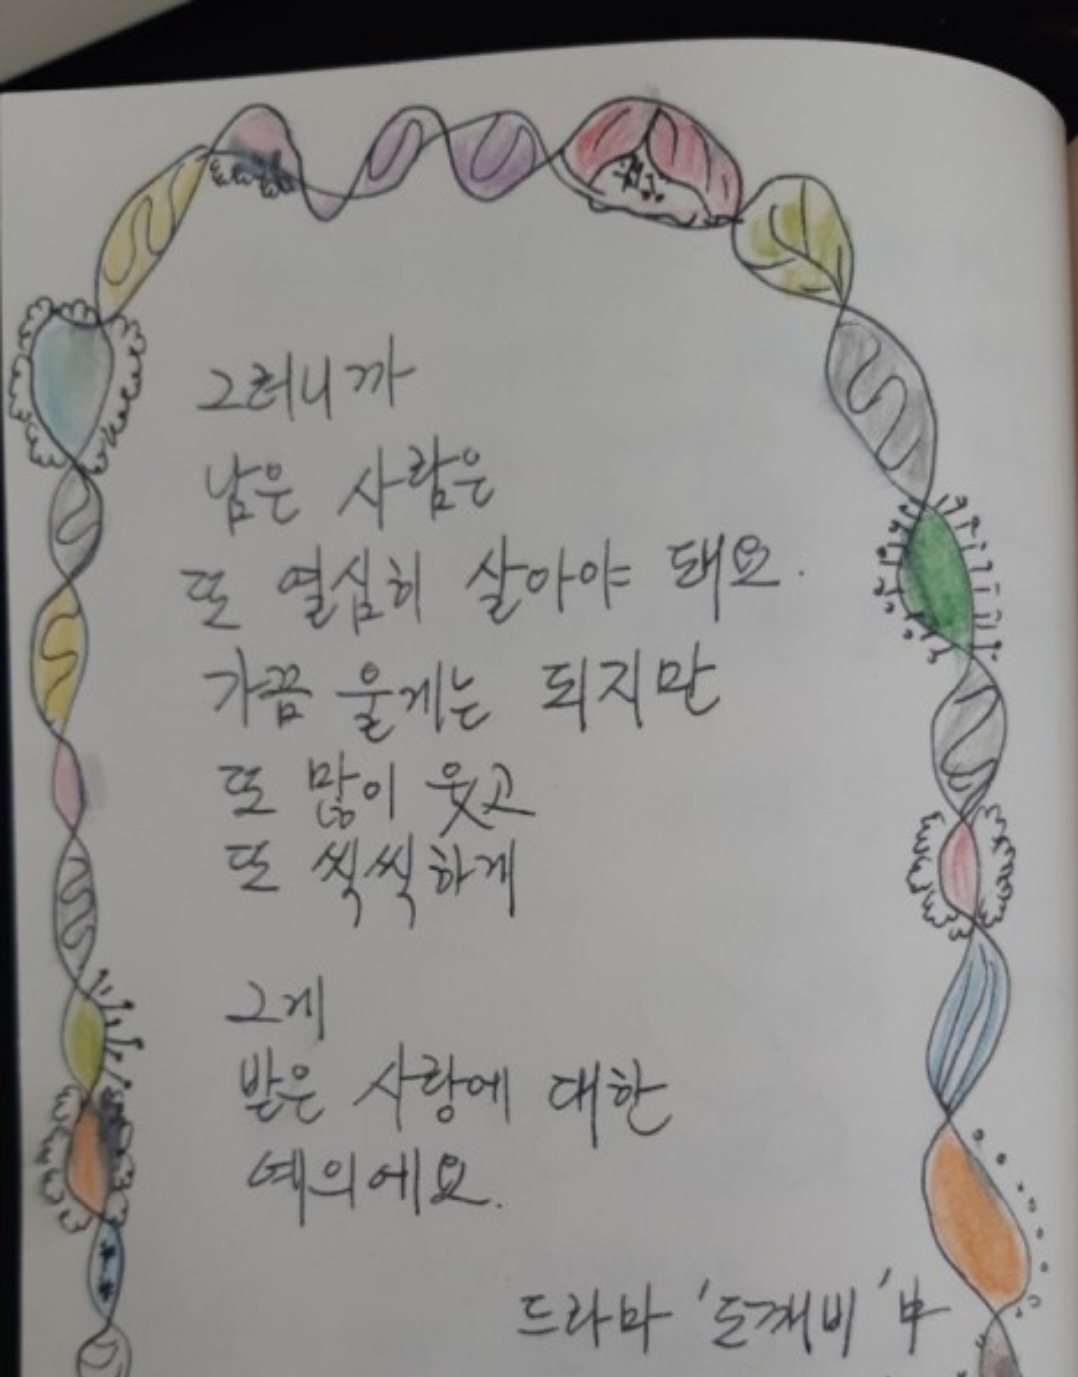 그러니까
남은 사람은
또 열심히 살아야 돼요.
가끔 울게는 되지만
또 많이 웃고
또 씩씩하게
그게
받은 사랑에 대한
예의에요.
드라마 '도깨비' 中